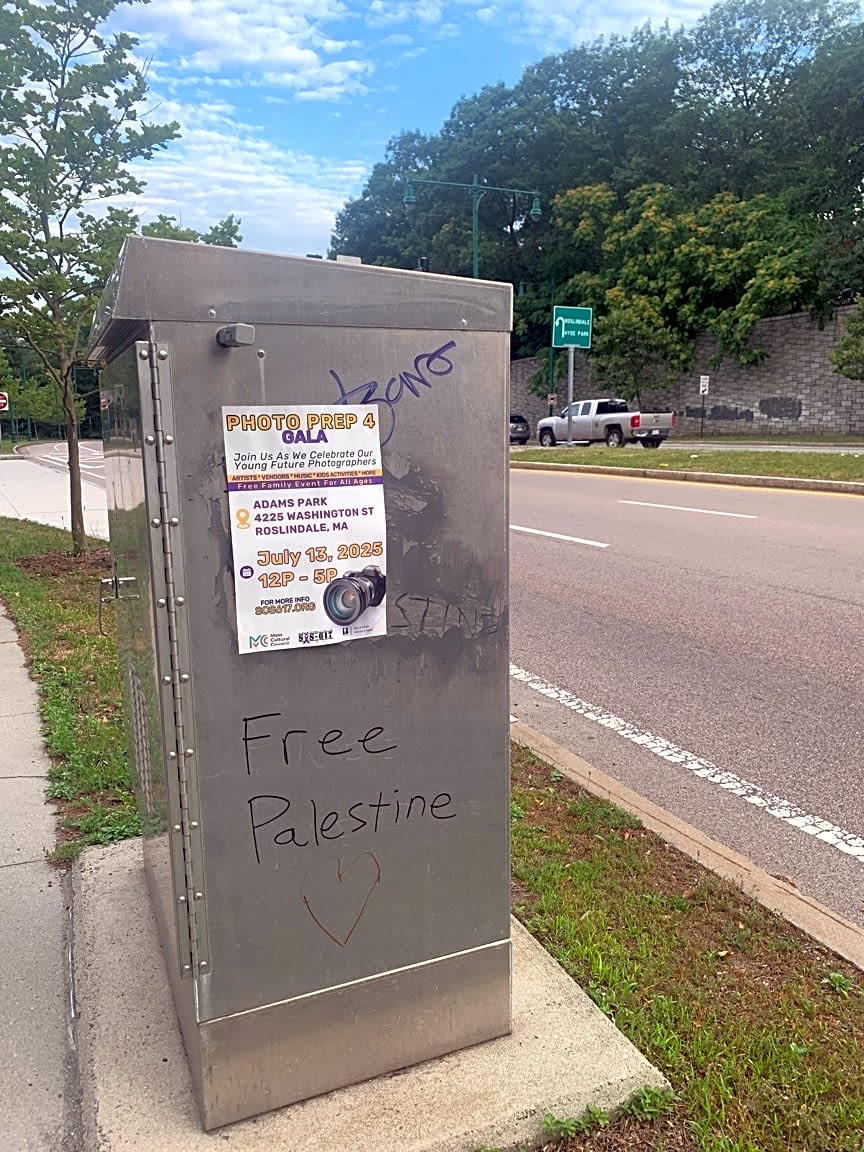 PHOTO PREP 4
GALA
Join Us As We Celebrate Our
Young Future Photographers
ARTISTS * VENDORS * MUSIC * KIDS ACTIVITIES * MORE
Free Family Event For All Ages
ADAMS PARK
4225 WASHINGTON ST
ROSLINDALE, MA
July 13, 2025
12P - 5P
FOR MORE INFO
SOS617.ORG
MC Mass
Cultural
Council
STINE
Free
Palestine
ROSLINDALE
HYDE PARK